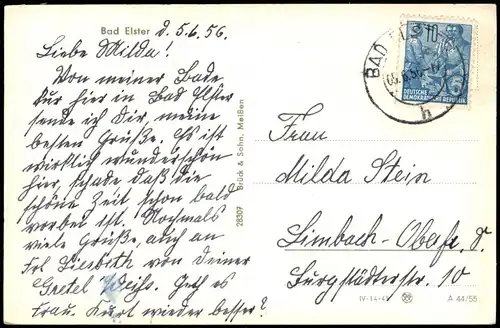 Bad Elster d. 5.6.56.
Liebe Milda!
Von meiner Bade
kur hier in Bad Elster
sende ich Dir, meine
besten Grüße. Es ist
wirklich wunderschön
hier, schade daß die
schöne Zeit schon bald
vorbei ist. Nochmals
viele Grüße, auch an
Frl Liesbeth von Deiner
Gretel Geht es
Frau. Kurt wieder besser?
28307 Brück & Sohn, Meißen
BAD ELSTER
h
10
6
DEUTSCHE
DEMOKRATISCHE REPUBLIK
Frau
Milda Stein
Limbach-Oberfr.
Burgstädterstr. 10
IV-14-45
A 44/55